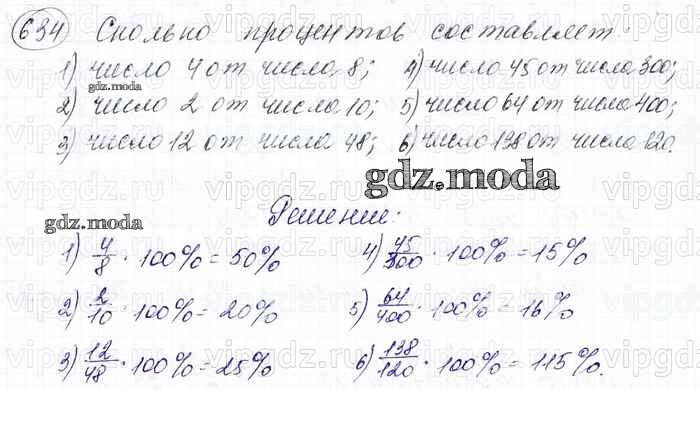 634 Сколько процентов составляет:
1) число 4 от числа 8; 4) число 45 от числа 300;
gdz.moda
2) число 2 от числа 10; 5) число 64 от числа 400;
3) число 12 от числа 48; 6) число 138 от числа 120.
gdz.moda
gdz.moda
Решение:
1) 4/8 · 100% = 50% 4) 45/300 · 100% = 15%
2) 2/10 · 100% = 20% 5) 64/400 · 100% = 16%
3) 12/48 · 100% = 25% 6) 138/120 · 100% = 115%.
vipgdz.ru